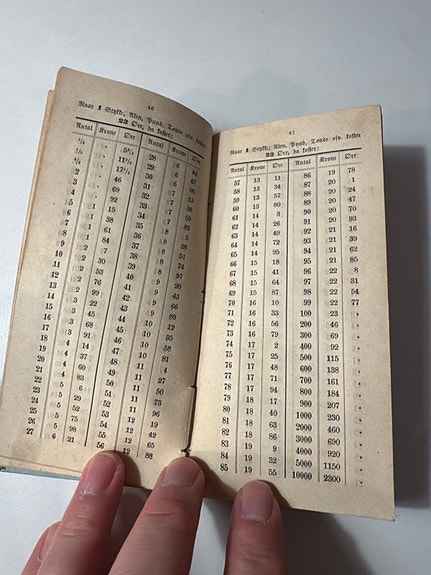 46
Naar 1 Stykke, Alen, Pund, Tønde osv. koster
23 Øre, da koster:
Antal Krone Øre Antal Krone Øre
1/4 5 3/4 28 6 44
1/2 11 1/2 29 6 67
3/4 17 1/4 30 6 90
2 46 31 7 13
3 69 32 7 36
4 92 33 7 59
5 1 15 34 7 82
6 1 38 35 8 5
7 1 61 36 8 28
8 1 84 37 8 51
9 2 7 38 8 74
10 2 30 39 8 97
11 2 53 40 9 20
12 2 76 41 9 43
13 2 99 42 9 66
14 3 22 43 9 89
15 3 45 44 10 12
16 3 68 45 10 35
17 3 91 46 10 58
18 4 14 47 10 81
19 4 37 48 11 4
20 4 60 49 11 27
21 4 83 50 11 50
22 5 6 51 11 73
23 5 29 52 11 96
24 5 52 53 12 19
25 5 75 54 12 42
26 5 98 55 12 65
27 6 21 56 12 88
47
Naar 1 Stykke, Alen, Pund, Tønde osv. koster
23 Øre, da koster:
Antal Krone Øre Antal Krone Øre
57 13 11 86 19 78
58 13 34 87 20 1
59 13 57 88 20 24
60 13 80 89 20 47
61 14 3 90 20 70
62 14 26 91 20 93
63 14 49 92 21 16
64 14 72 93 21 39
65 14 95 94 21 62
66 15 18 95 21 85
67 15 41 96 22 8
68 15 64 97 22 31
69 15 87 98 22 54
70 16 10 99 22 77
71 16 33 100 23 .
72 16 56 200 46 .
73 16 79 300 69 .
74 17 2 400 92 .
75 17 25 500 115 .
76 17 48 600 138 .
77 17 71 700 161 .
78 17 94 800 184 .
79 18 17 900 207 .
80 18 40 1000 230 .
81 18 63 2000 460 .
82 18 86 3000 690 .
83 19 9 4000 920 .
84 19 32 5000 1150 .
85 19 55 10000 2300 .